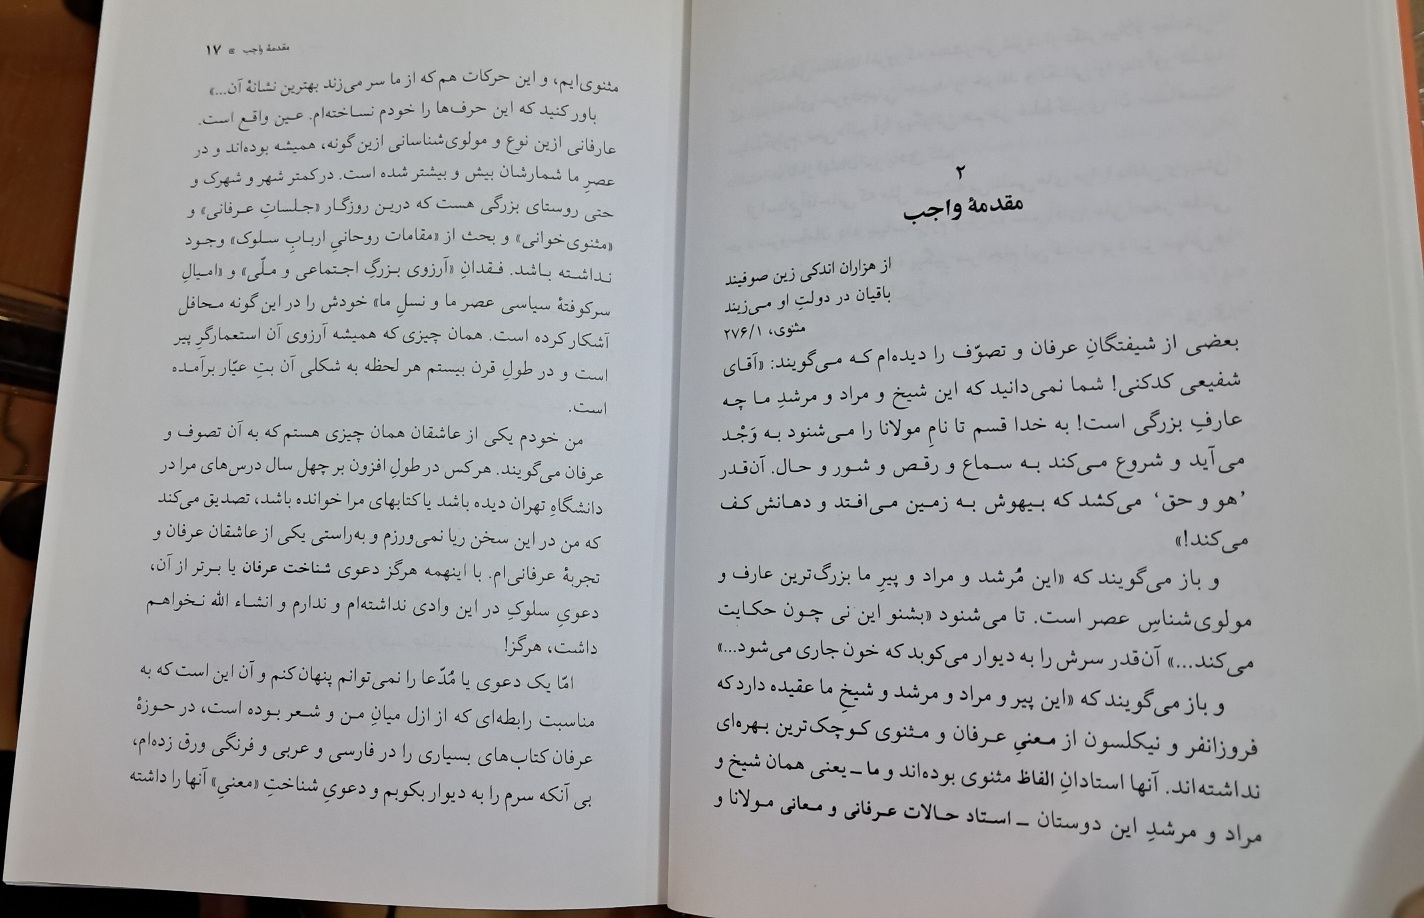 ۲
مقدمهٔ واجب
از هزاران اندکی زین صوفیند
باقیان در دولتِ او می‌زیند
مثنوی، ۲۷۶/۱
بعضی از شیفتگانِ عرفان و تصوّف را دیده‌ام که می‌گویند: «آقای
شفیعی کدکنی! شما نمی‌دانید که این شیخ و مراد و مرشدِ ما چه
عارفِ بزرگی است! به خدا قسم تا نامِ مولانا را می‌شنود به وَجْد
می‌آید و شروع می‌کند به سماع و رقص و شور و حال. آن‌قدر
‘هو و حق’ می‌کشد که بیهوش به زمین می‌افتد و دهانش کف
می‌کند!»
و باز می‌گویند که «این مُرشد و مراد و پیرِ ما بزرگ‌ترین عارف و
مولوی‌شناسِ عصر است. تا می‌شنود «بشنو این نی چون حکایت
می‌کند...» آن‌قدر سرش را به دیوار می‌کوبد که خون جاری می‌شود...»
و باز می‌گویند که «این پیر و مراد و مرشد و شیخِ ما عقیده دارد که
فروزانفر و نیکلسون از معنیِ عرفان و مثنوی کوچک‌ترین بهره‌ای
نداشته‌اند. آنها استادانِ الفاظ مثنوی بوده‌اند و ما ـ یعنی همان شیخ و
مراد و مرشدِ این دوستان ـ استاد حالات عرفانی و معانی مولانا و
مقدمهٔ واجب » ۱۷
مثنوی‌ایم، و این حرکات هم که از ما سر می‌زند بهترین نشانهٔ آن...»
باور کنید که این حرف‌ها را خودم نساخته‌ام. عین واقع است.
عارفانی ازین نوع و مولوی‌شناسانی ازین گونه، همیشه بوده‌اند و در
عصرِ ما شمارشان بیش و بیشتر شده است. در کمتر شهر و شهرک و
حتی روستای بزرگی هست که درین روزگار «جلساتِ عرفانی» و
«مثنوی‌خوانی» و بحث از «مقامات روحانیِ اربابِ سلوک» وجود
نداشته باشد. فقدانِ «آرزوی بزرگِ اجتماعی و ملّی» و «امیالِ
سرکوفتهٔ سیاسی عصر ما و نسلِ ما» خودش را در این گونه محافل
آشکار کرده است. همان چیزی که همیشه آرزوی آن استعمارگرِ پیر
است و در طولِ قرن بیستم هر لحظه به شکلی آن بتِ عیّار برآمده
است.
من خودم یکی از عاشقان همان چیزی هستم که به آن تصوف و
عرفان می‌گویند. هرکس در طولِ افزون بر چهل سال درس‌های مرا در
دانشگاهِ تهران دیده باشد یا کتابهای مرا خوانده باشد، تصدیق می‌کند
که من در این سخن ریا نمی‌ورزم و به‌راستی یکی از عاشقان عرفان و
تجربهٔ عرفانی‌ام. با اینهمه هرگز دعوی شناخت عرفان یا برتر از آن،
دعویِ سلوکِ در این وادی نداشته‌ام و ندارم و انشاء الله نخواهم
داشت، هرگز!
امّا یک دعوی یا مُدّعا را نمی‌توانم پنهان کنم و آن این است که به
مناسبت رابطه‌ای که از ازل میانِ من و شعر بوده است، در حوزهٔ
عرفان کتاب‌های بسیاری را در فارسی و عربی و فرنگی ورق زده‌ام،
بی آنکه سرم را به دیوار بکوبم و دعویِ شناختِ «معنیِ» آنها را داشته